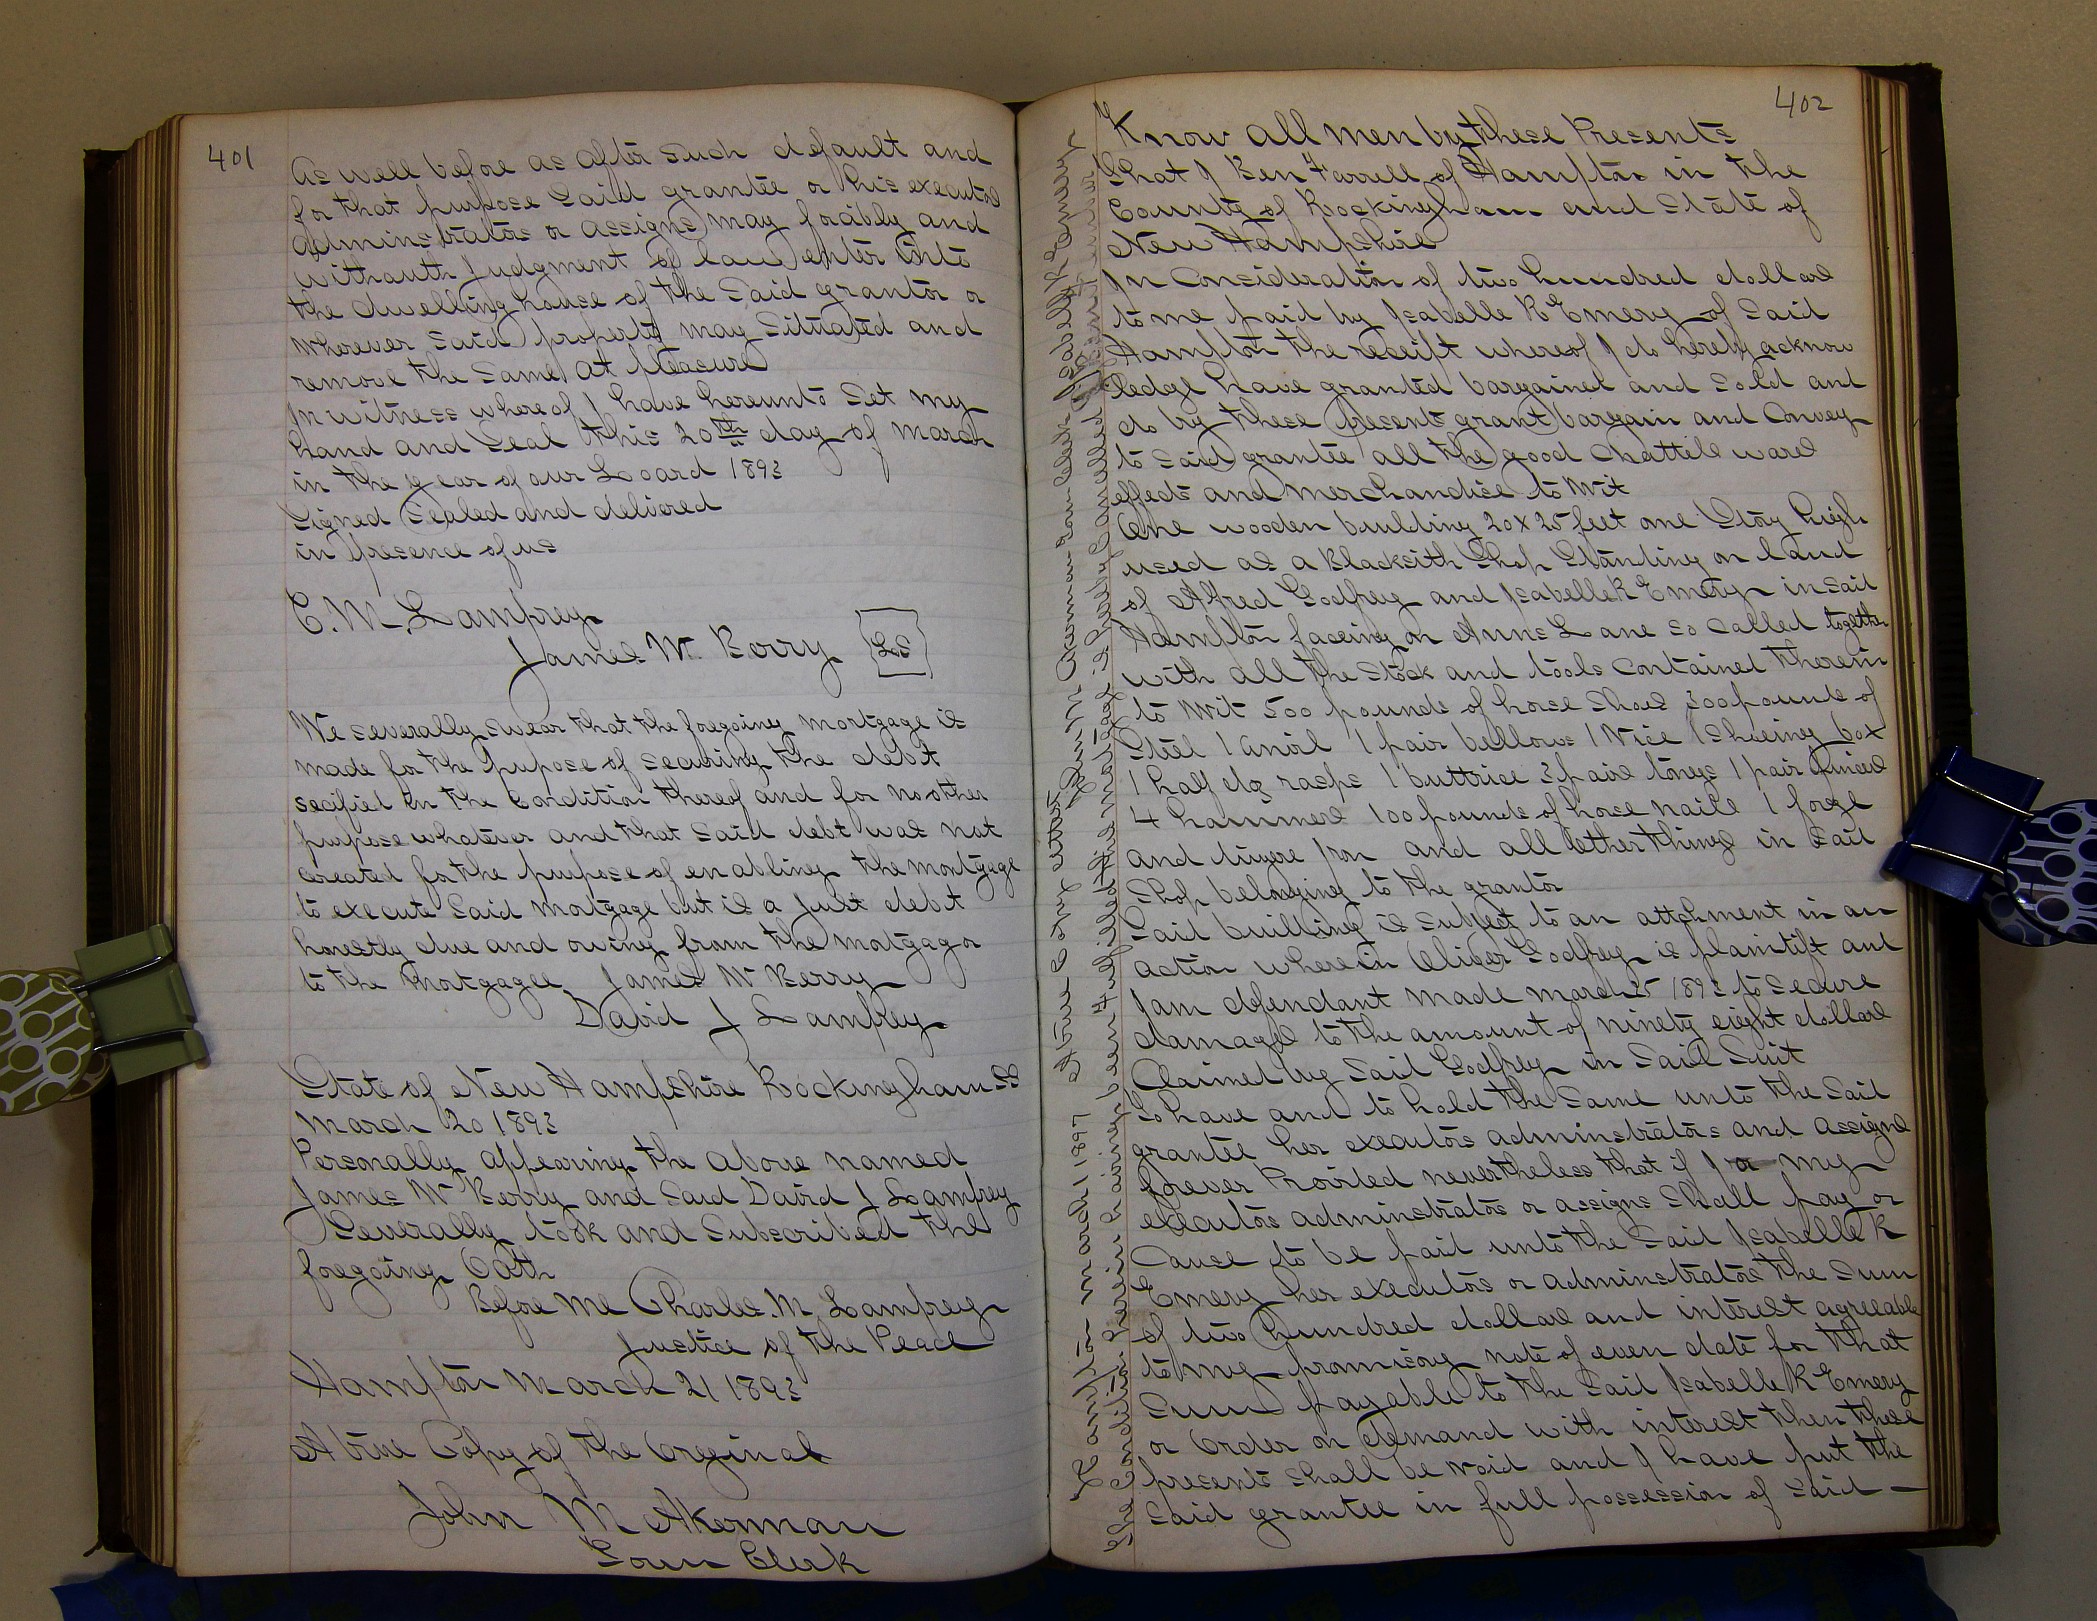 401
As well before as after such default and
for that purpose Said grantee or his executors
adminsstrators or assigns may forcibly and
withouth Judgment of law enter into
the dwelling house of the Said grantor or
wherever Said property may Situated and
remove the Same at pleasure
In witness whereof I have hereunto Set my
hand and Seal this 20th day of March
in the year of our Loard 1893
Signed Sealed and delivered
in presence of us
C. M. Lamprey
James W. Berry LS
We severally swear that the foregoing mortgage is
made for the purpose of securing the debt
secified in the Condition thereof and for no other
purpose whatever and that Said debt was not
created for the purpose of enabling the mortgage
to execute Said Mortgage but is a Just debt
honestly due and owing from the mortgagor
to the Mortgagee James W Berry
David J Lamprey
State of New Hampshire Rockingham SS
March 20 1893
Personally appearing the above named
James W Berry and Said David J Lamprey
Severally took and Subscribed the
foregoing Oath
Before Me Charles. M. Lamprey
Justice of the Peace
Hampton March 21 1893
A true Copy of the Original
John M Akerman
Town Clerk
402
Know all men by these Presents
that I Ben F Farrell of Hampton in the
County of Rockingham and State of
New Hampshire
In Consideration of two hundred dollars
to me paid by Isabelle R Emery of Said
Hampton the receipt whereof I do hereby acknow
ledge have granted bargained and Sold and
do by these presents grant bargain and Convey
to Said grantee all the good Chattels wares
effects and merchandise to Wit
One wooden building 20 x 25 feet one Story high
used as a Blacksith Shop Standing on land
of Alfred Godfrey and Isabelle R Emery in Said
Hampton faceing on Anns Lane so Called together
with all the Stock and tools Contained therein
to Wit 500 pounds of horse Shoes 300 pounds of
Steel 1 anvil 1 pair bellows 1 Vice 1 Shoeing box
1 half doz rasps 1 buttrice 3 pairs tongs 1 pair pincers
4 hammers 100 pounds of horse nails 1 forge
and tuyere Iron and all other things in Said
Shop belonging to the grantor
Said building is Subject to an attchment in an
action wherein Oliver Godfrey is plaintift and
I am defendant made March 25 1893 to Secure
damages to the amount of ninety eight dollars
Claimed by Said Godfrey in Said Suit
To have and to hold the Same unto the Said
grantee her executors adminsstrators and assigns
forever Provited nevertheless that if I or my
executors adminsstrators or assigns Shall pay or
Cause to be paid unto the Said Isabelle R
Emery her executors or adminsstrators the Sum
of two hundred dollars and interest agreeable
to my promisory note of even date for that
Sum payable to the Said Isabelle R Emery
or Order on demand with interest then these
presents Shall be Void and I have put the
Said grantee in full possession of Said —
Hampton March 1 1897 A true Copy attest John M Akerman Town Clerk Isabelle R Emery
The Condition herein having been fulfilled this mortgage is hereby Cancelled